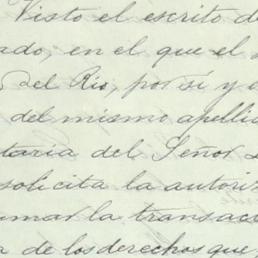 Visto el escrito de
ado, en el que el
del Rio, por sí y
del mismo apelli
taria del Señor
solicita la autoriz
mar la transacc
a de los derechos que